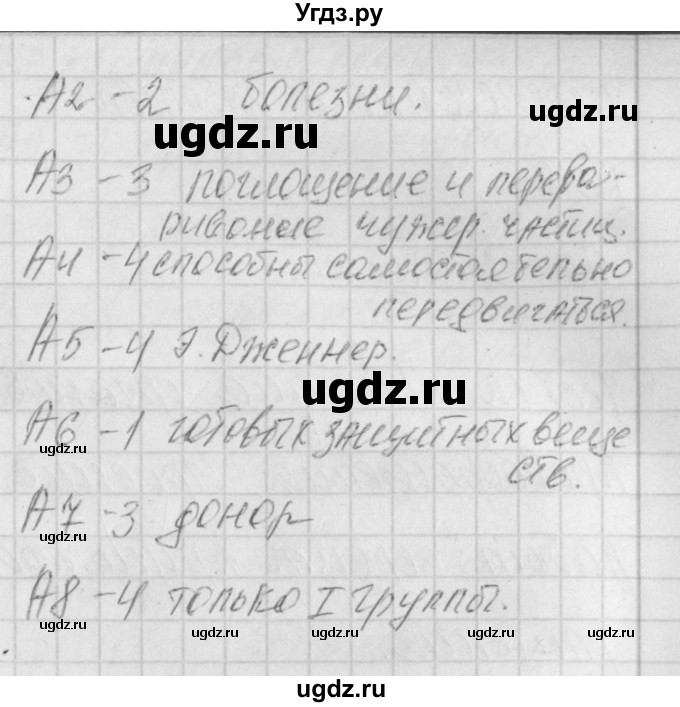 Угдз.ру
А2 - 2 болезни.
ugdz.ru
А3 - 3 поглощение и перева-
ривание чужер. частиц.
А4 - 4 способны самостоятельно
ugdz.ru
передвигаться.
А5 - 4 Э. Дженнер.
ugdz.ru
А6 - 1 готовых защитных веще
ugdz.ru
ств.
А7 - 3 донор
ugdz.ru
А8 - 4 только I группы.
ugdz.ru ugdz.ru ugdz.ru ugdz.ru
ugdz.ru